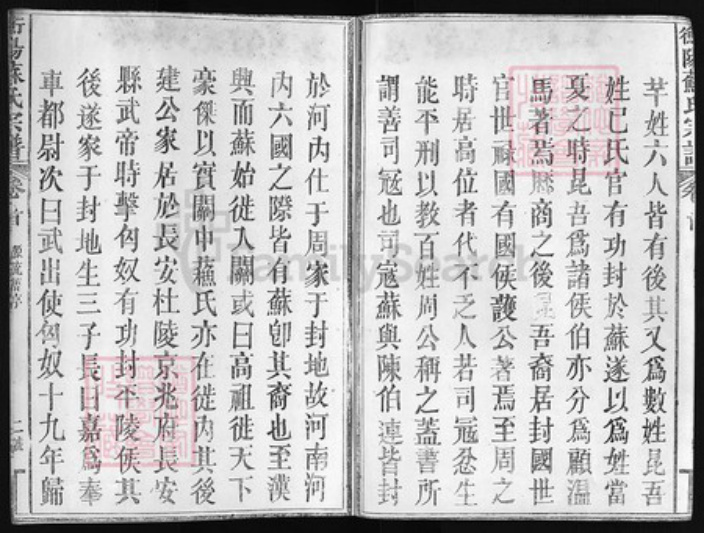 芉姓六人皆有後其又爲數姓昆吾
姓已氏官有功封於蘇遂以爲姓當
夏之時昆吾爲諸侯伯亦分爲顧溫
馬著焉歷商之後昆吾裔居封國世
官世祿國有國侯護公著焉至周之
時居高位者代不乏人若司寇忿生
能平刑以教百姓周公稱之蓋書所
謂善司寇也司寇蘇與陳伯連皆封
於河內仕于周家于封地故河南河
內六國之際皆有蘇卽其裔也至漢
興而蘇始徙入關或曰高祖徙天下
豪傑以實關中蘓氏亦在徙內其後
建公家居於長安杜陵京兆府長安
縣武帝時擊匈奴有功封平陵侯其
後遂家于封地生三子長曰嘉爲奉
車都尉次曰武出使匈奴十九年歸
衡陽蘇氏宗譜
卷首
FamilySearch